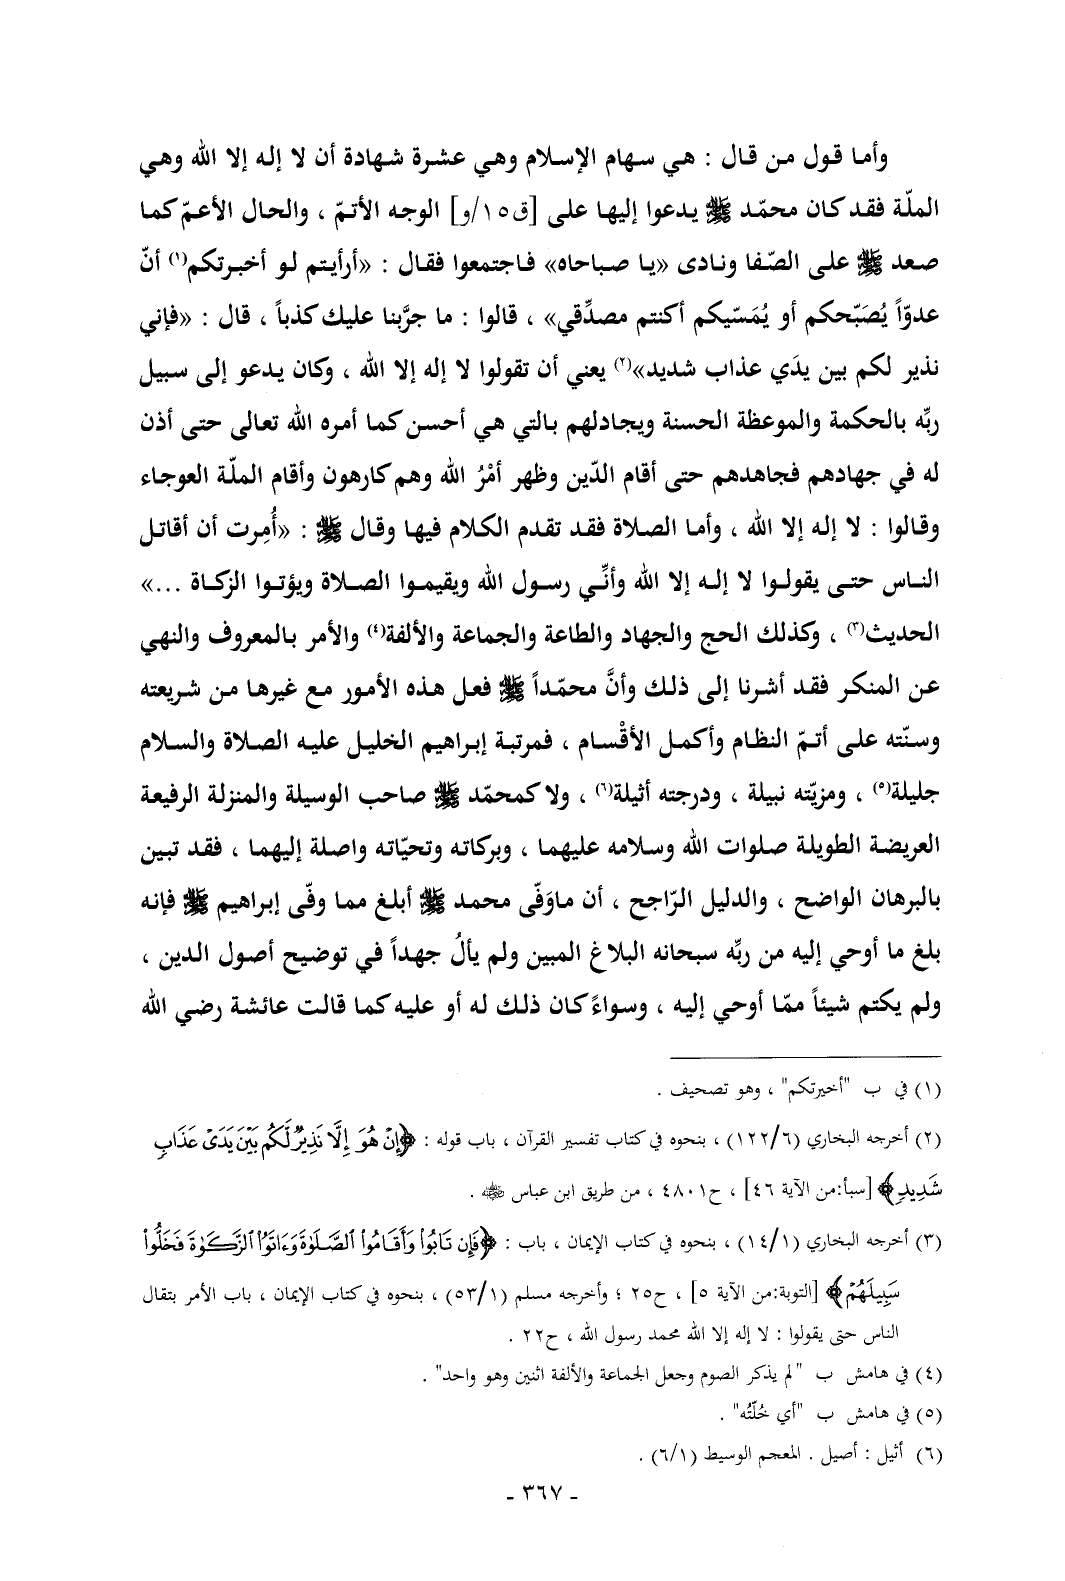 وأما قول من قال : هي سهام الإسلام وهي عشرة شهادة أن لا إله إلا الله وهي
الملّة فقد كان محمّد ﷺ يدعوا إليها على [ق١٥/و] الوجه الأتمّ ، والحال الأعمّ كما
صعد ﷺ على الصّفا ونادى «يا صباحاه» فاجتمعوا فقال : «أرأيتم لو أخبرتكم(١) أنّ
عدوّاً يُصَبّحكم أو يُمَسّيكم أكنتم مصدِّقي» ، قالوا : ما جرَّبنا عليك كذباً ، قال : «فإني
نذير لكم بين يدَي عذاب شديد»(٢) يعني أن تقولوا لا إله إلا الله ، وكان يدعو إلى سبيل
ربِّه بالحكمة والموعظة الحسنة ويجادلهم بالتي هي أحسن كما أمره الله تعالى حتى أذن
له في جهادهم فجاهدهم حتى أقام الدّين وظهر أمْرُ الله وهم كارهون وأقام الملّة العوجاء
وقالوا : لا إله إلا الله ، وأما الصلاة فقد تقدم الكلام فيها وقال ﷺ : «أُمِرت أن أقاتل
الناس حتى يقولوا لا إله إلا الله وأنِّي رسول الله ويقيموا الصلاة ويؤتوا الزكاة ...»
الحديث(٣) ، وكذلك الحج والجهاد والطاعة والجماعة والألفة(٤) والأمر بالمعروف والنهي
عن المنكر فقد أشرنا إلى ذلك وأنَّ محمّداً ﷺ فعل هذه الأمور مع غيرها من شريعته
وسنّته على أتمّ النظام وأكمل الأقْسام ، فمرتبة إبراهيم الخليل عليه الصلاة والسلام
جليلة(٥) ، ومزيّته نبيلة ، ودرجته أثيلة(٦) ، ولا كمحمّد ﷺ صاحب الوسيلة والمنزلة الرفيعة
العريضة الطويلة صلوات الله وسلامه عليهما ، وبركاته وتحيّاته واصلة إليهما ، فقد تبين
بالبرهان الواضح ، والدليل الرّاجح ، أن ماوَفّى محمد ﷺ أبلغ مما وفّى إبراهيم ﷺ فإنه
بلغ ما أوحي إليه من ربِّه سبحانه البلاغ المبين ولم يألُ جهداً في توضيح أصول الدين ،
ولم يكتم شيئاً ممّا أوحي إليه ، وسواءً كان ذلك له أو عليه كما قالت عائشة رضي الله
(١) في ب "أخيرتكم" ، وهو تصحيف .
(٢) أخرجه البخاري (١٢٢/٦) ، بنحوه في كتاب تفسير القرآن ، باب قوله : ﴿إِنْ هُوَ إِلَّا نَذِيرٌ لَّكُم بَيْنَ يَدَىْ عَذَابٍ
شَدِيدٍ﴾ [سبأ:من الآية ٤٦] ، ح٤٨٠١ ، من طريق ابن عباس ﷺ .
(٣) أخرجه البخاري (١٤/١) ، بنحوه في كتاب الإيمان ، باب : ﴿فَإِن تَابُوا۟ وَأَقَامُوا۟ ٱلصَّلَوٰةَ وَءَاتَوُا۟ ٱلزَّكَوٰةَ فَخَلُّوا۟
سَبِيلَهُمْ﴾ [التوبة:من الآية ٥] ، ح٢٥ ؛ وأخرجه مسلم (٥٣/١) ، بنحوه في كتاب الإيمان ، باب الأمر بتقال
الناس حتى يقولوا : لا إله إلا الله محمد رسول الله ، ح٢٢ .
(٤) في هامش ب "لم يذكر الصوم وجعل الجماعة والألفة اثنين وهو واحد" .
(٥) في هامش ب "أي خُلّتُه" .
(٦) أثيل : أصيل . المعجم الوسيط (٦/١) .
- ٣٦٧ -